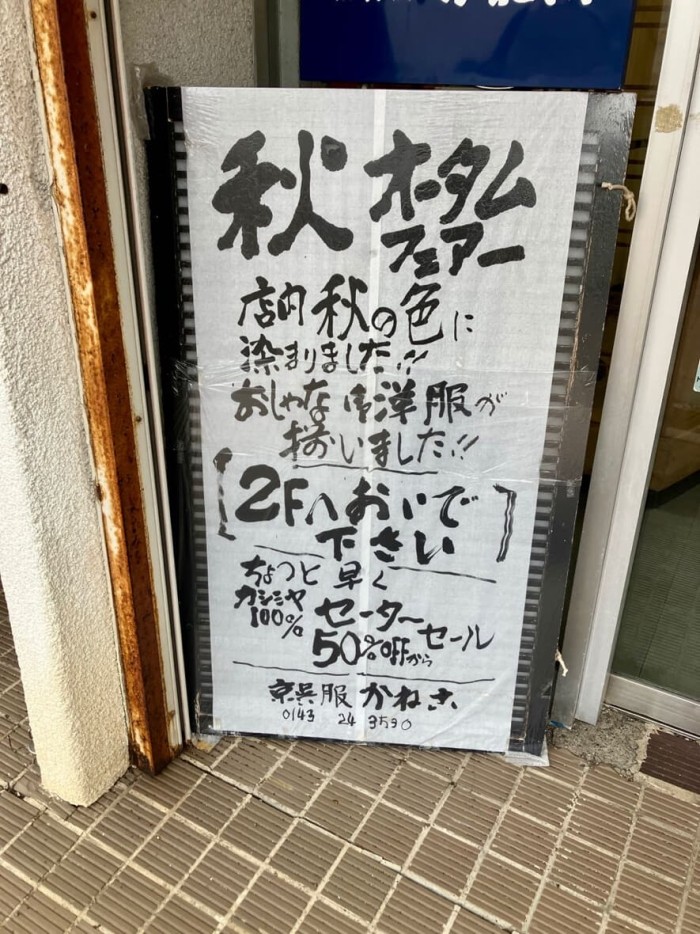 秋 オータム
フェアー
店内秋の色に
染まりました!!
おしゃな 洋服が
揃いました!!
2Fへおいで
下さい
ちょっと早く
カシミヤ
100%
セーター
50%OFFから
セール
京呉服 かねさ
0143 24 3590